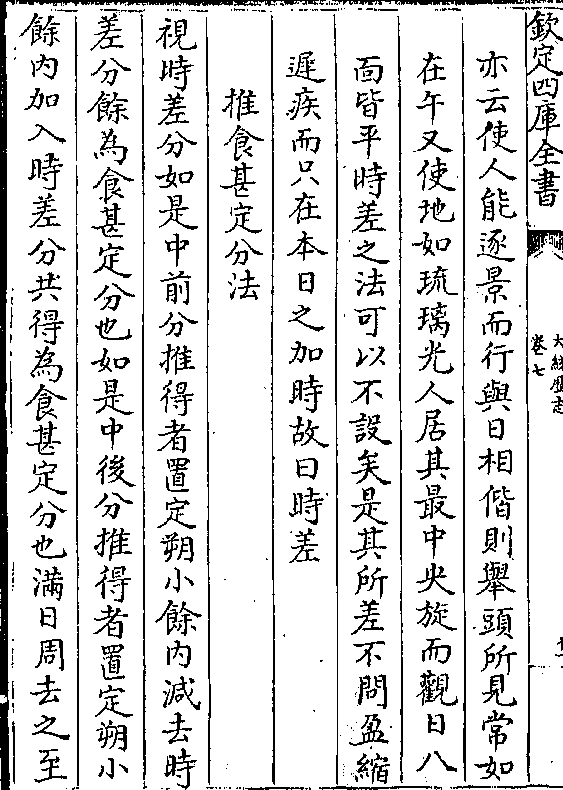 欽定四庫全書
大統歴志
卷七
亦云使人能逐景而行與日相偕則舉頭所見常如
在午又使地如琉璃光人居其最中央旋而觀日八
面皆平時差之法可以不設矣是其所差不問盈縮
遲疾而只在本日之加時故曰時差
推食甚定分法
視時差分如是中前分推得者置定朔小餘內減去時
差分餘為食甚定分也如是中後分推得者置定朔小
餘內加入時差分共得為食甚定分也滿日周去之至